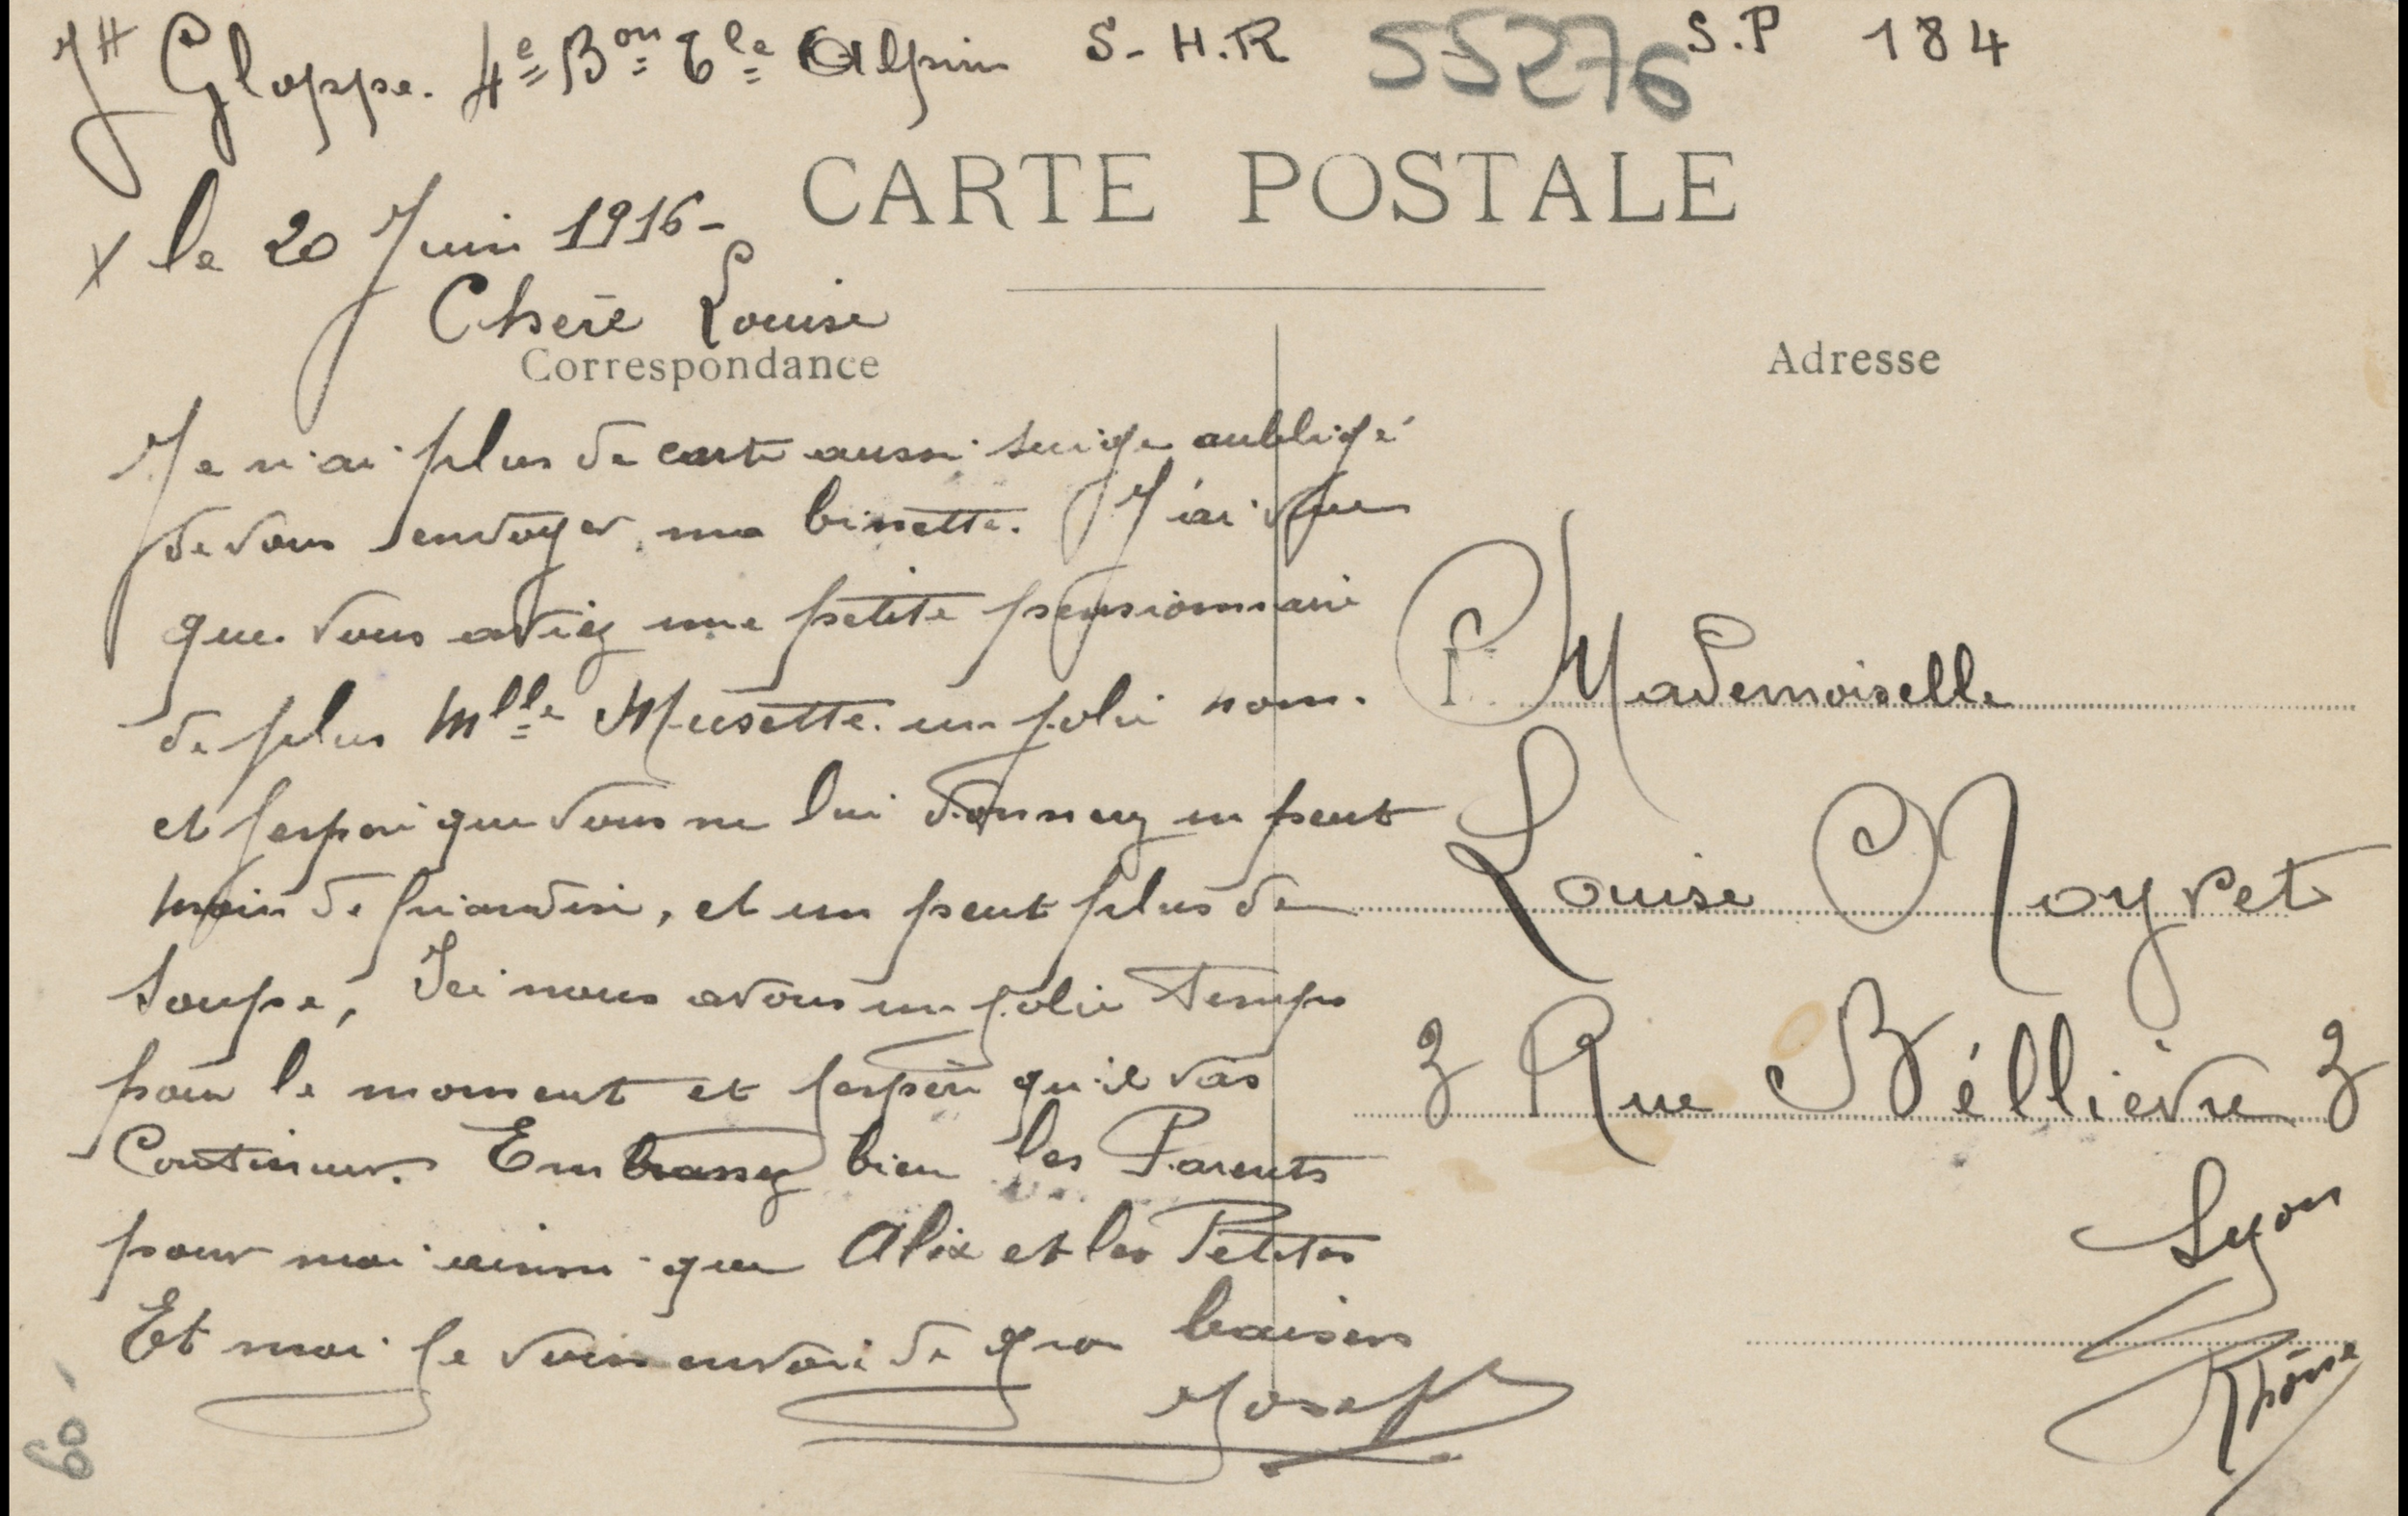 JH Gloppe. 4e Bon Tle Alpin S-H.R 55276 S.P 184
CARTE POSTALE
X le 20 Juin 1916-
Chere Louise
Correspondance
Je n'ai plus de carte aussi suige aubligé
de vous envoyer ma binette. J'ai vue
que vous aviez une petite pensionnaire
de plus Mlle Musette. un joli nom.
et jespoir que vous ne lui donnerez un peut
moin de friandise, et un peut plus de
soupe, Ici nous avons un joli temps
pour le moment et jespère qu'il vas
Continuer. Embrassez bien les Parents
pour moi ainsi que Alix et les Petites
Et moi je vous envoi de gros baisers
Joseph
60-
Adresse
Mademoiselle
Louise Noyret
3 Rue Béllièvre 3
Lyon
Rhône